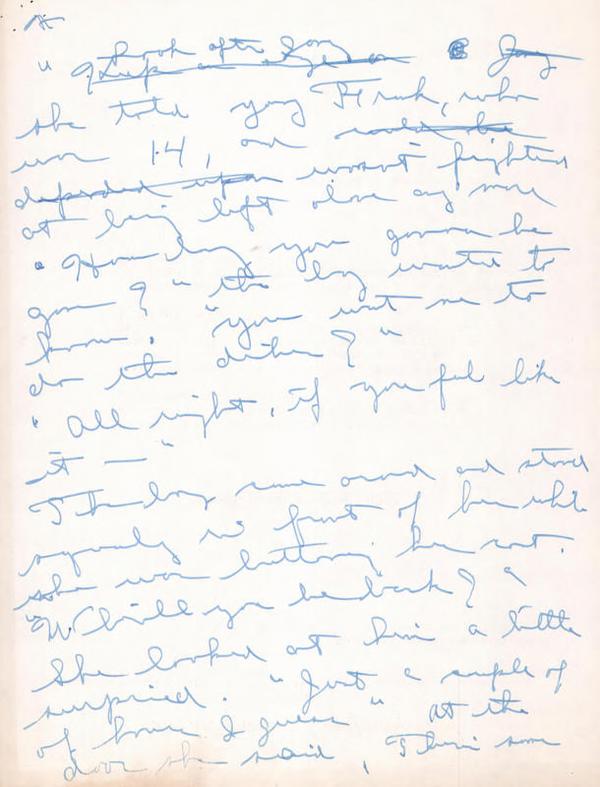 " Look after Gary
Keep an eye on Gary
she told young Frank, who
was 14, and could be
depended upon wasn't frightened
at being left alone any more
"How long you gonna be
gone?" the boy wanted to
know. "You want me to
do the dishes?"
"All right, if you feel like
it —"
The boy came around and stood
squarely in front of her while
she was buttoning her coat.
"When'll you be back?"
She looked at him a little
surprised. "Just a couple of
of hours I guess" At the
door she said, There's some